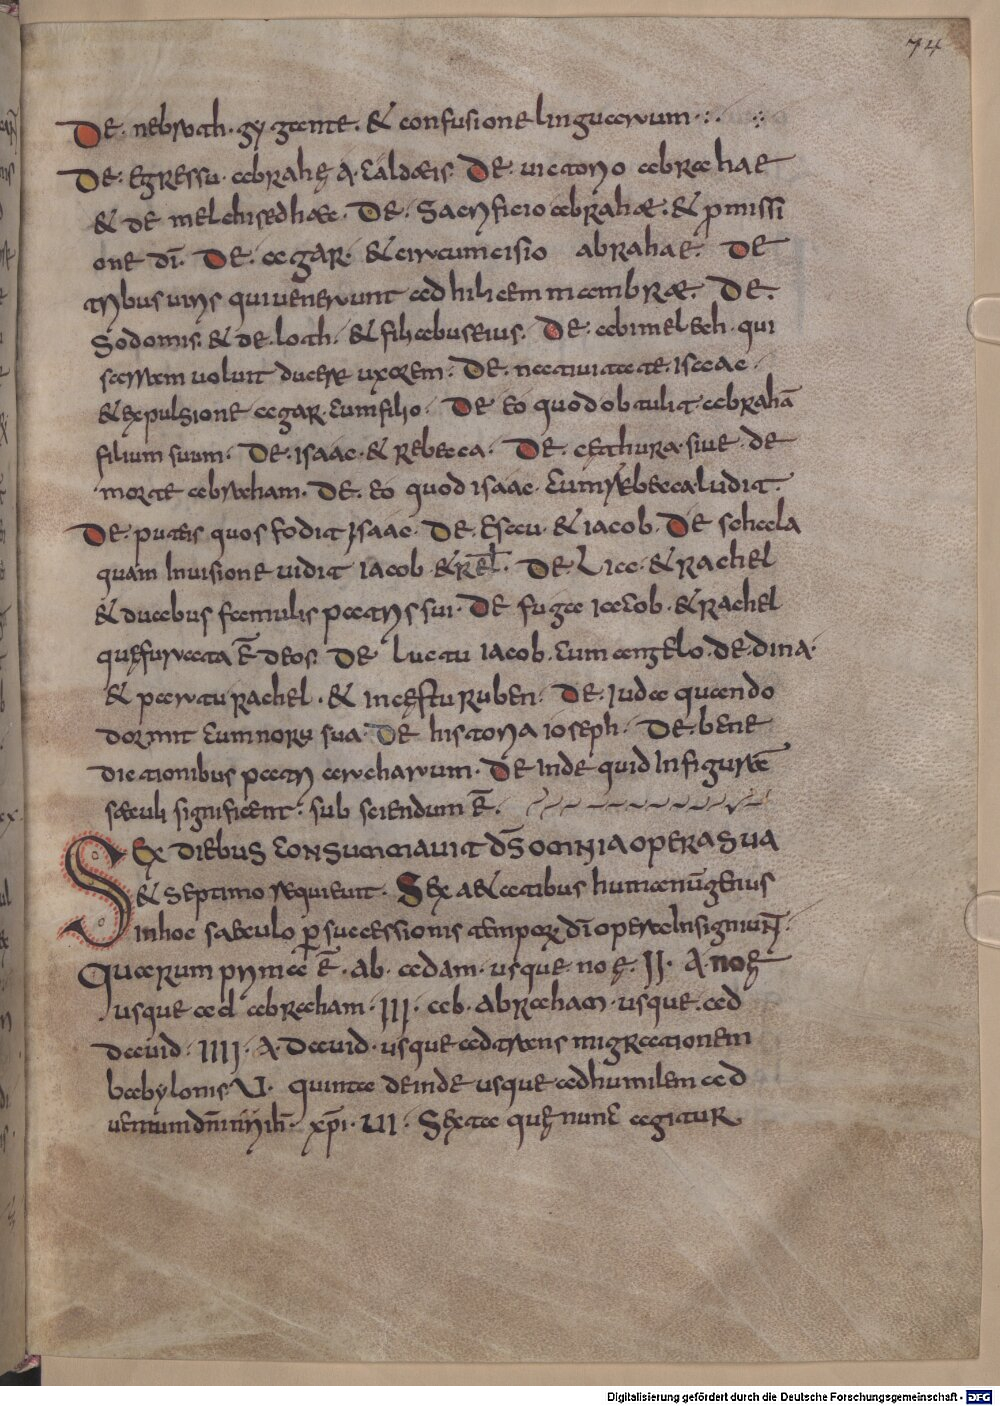 74
De. nebroth. gygante. & confusione linguarum
De. egressu. abrahę a. caldæis. De. uictorio abrahae
& de melchisedhæc. De. Sacrificio abrahæ. & pmissi
one dī. De. agar. & circumcisio abrahae. De
tribus uiris qui uenerunt ad hilicem mambræ. De.
Sodomis. & de. loth. & filiabus eius. De. abimelech. qui
sarram uoluit ducere uxorem. De. natiuitate. isaac.
& expulsione agar. cum filio. De eo quod obtulit abrahā
filium suum. De. isaac. & rebecca. De. cethura. siue. de
morte abraham. De. eo quod isaac. cum rebecca ludit.
De. puteis quos fodit isaac. De. esau. & iacob. De schala
quam in uisione uidit iacob & rel. De. Lia. & rachel
& duabus famulis patris sui. De fuga iacob. & rachel
quę furata ē deos. De luctu iacob. cum angelo. de. dina.
& partu rachel. & incęstu ruben. De. iuda quando
dormiit cum noru sua. De historia ioseph. De. bene
dictionibus patriarcharum. De inde quid in figurae
sæculi significent. sub sciendum ē.
Sex diebus consummauit ds̄ omnia opera sua
& septimo requieuit. Sex aetatibus humanū genus
in hoc saeculo p successionis tempor dī opera insigniunt.
Quarum prima ē. ab. adam. usque noę. II. A noę
usque ad abraham. III. ab. abraham. usque. ad
dauid. IIII. A. dauid. usque ad trans migrationem
babylonis. V. quinta deinde usque ad humilem ad
uentum dn̄i nr̄i ih̄. xp̄i. VI. Sexta quę nunc agitur
Digitalisierung gefördert durch die Deutsche Forschungsgemeinschaft - DFG